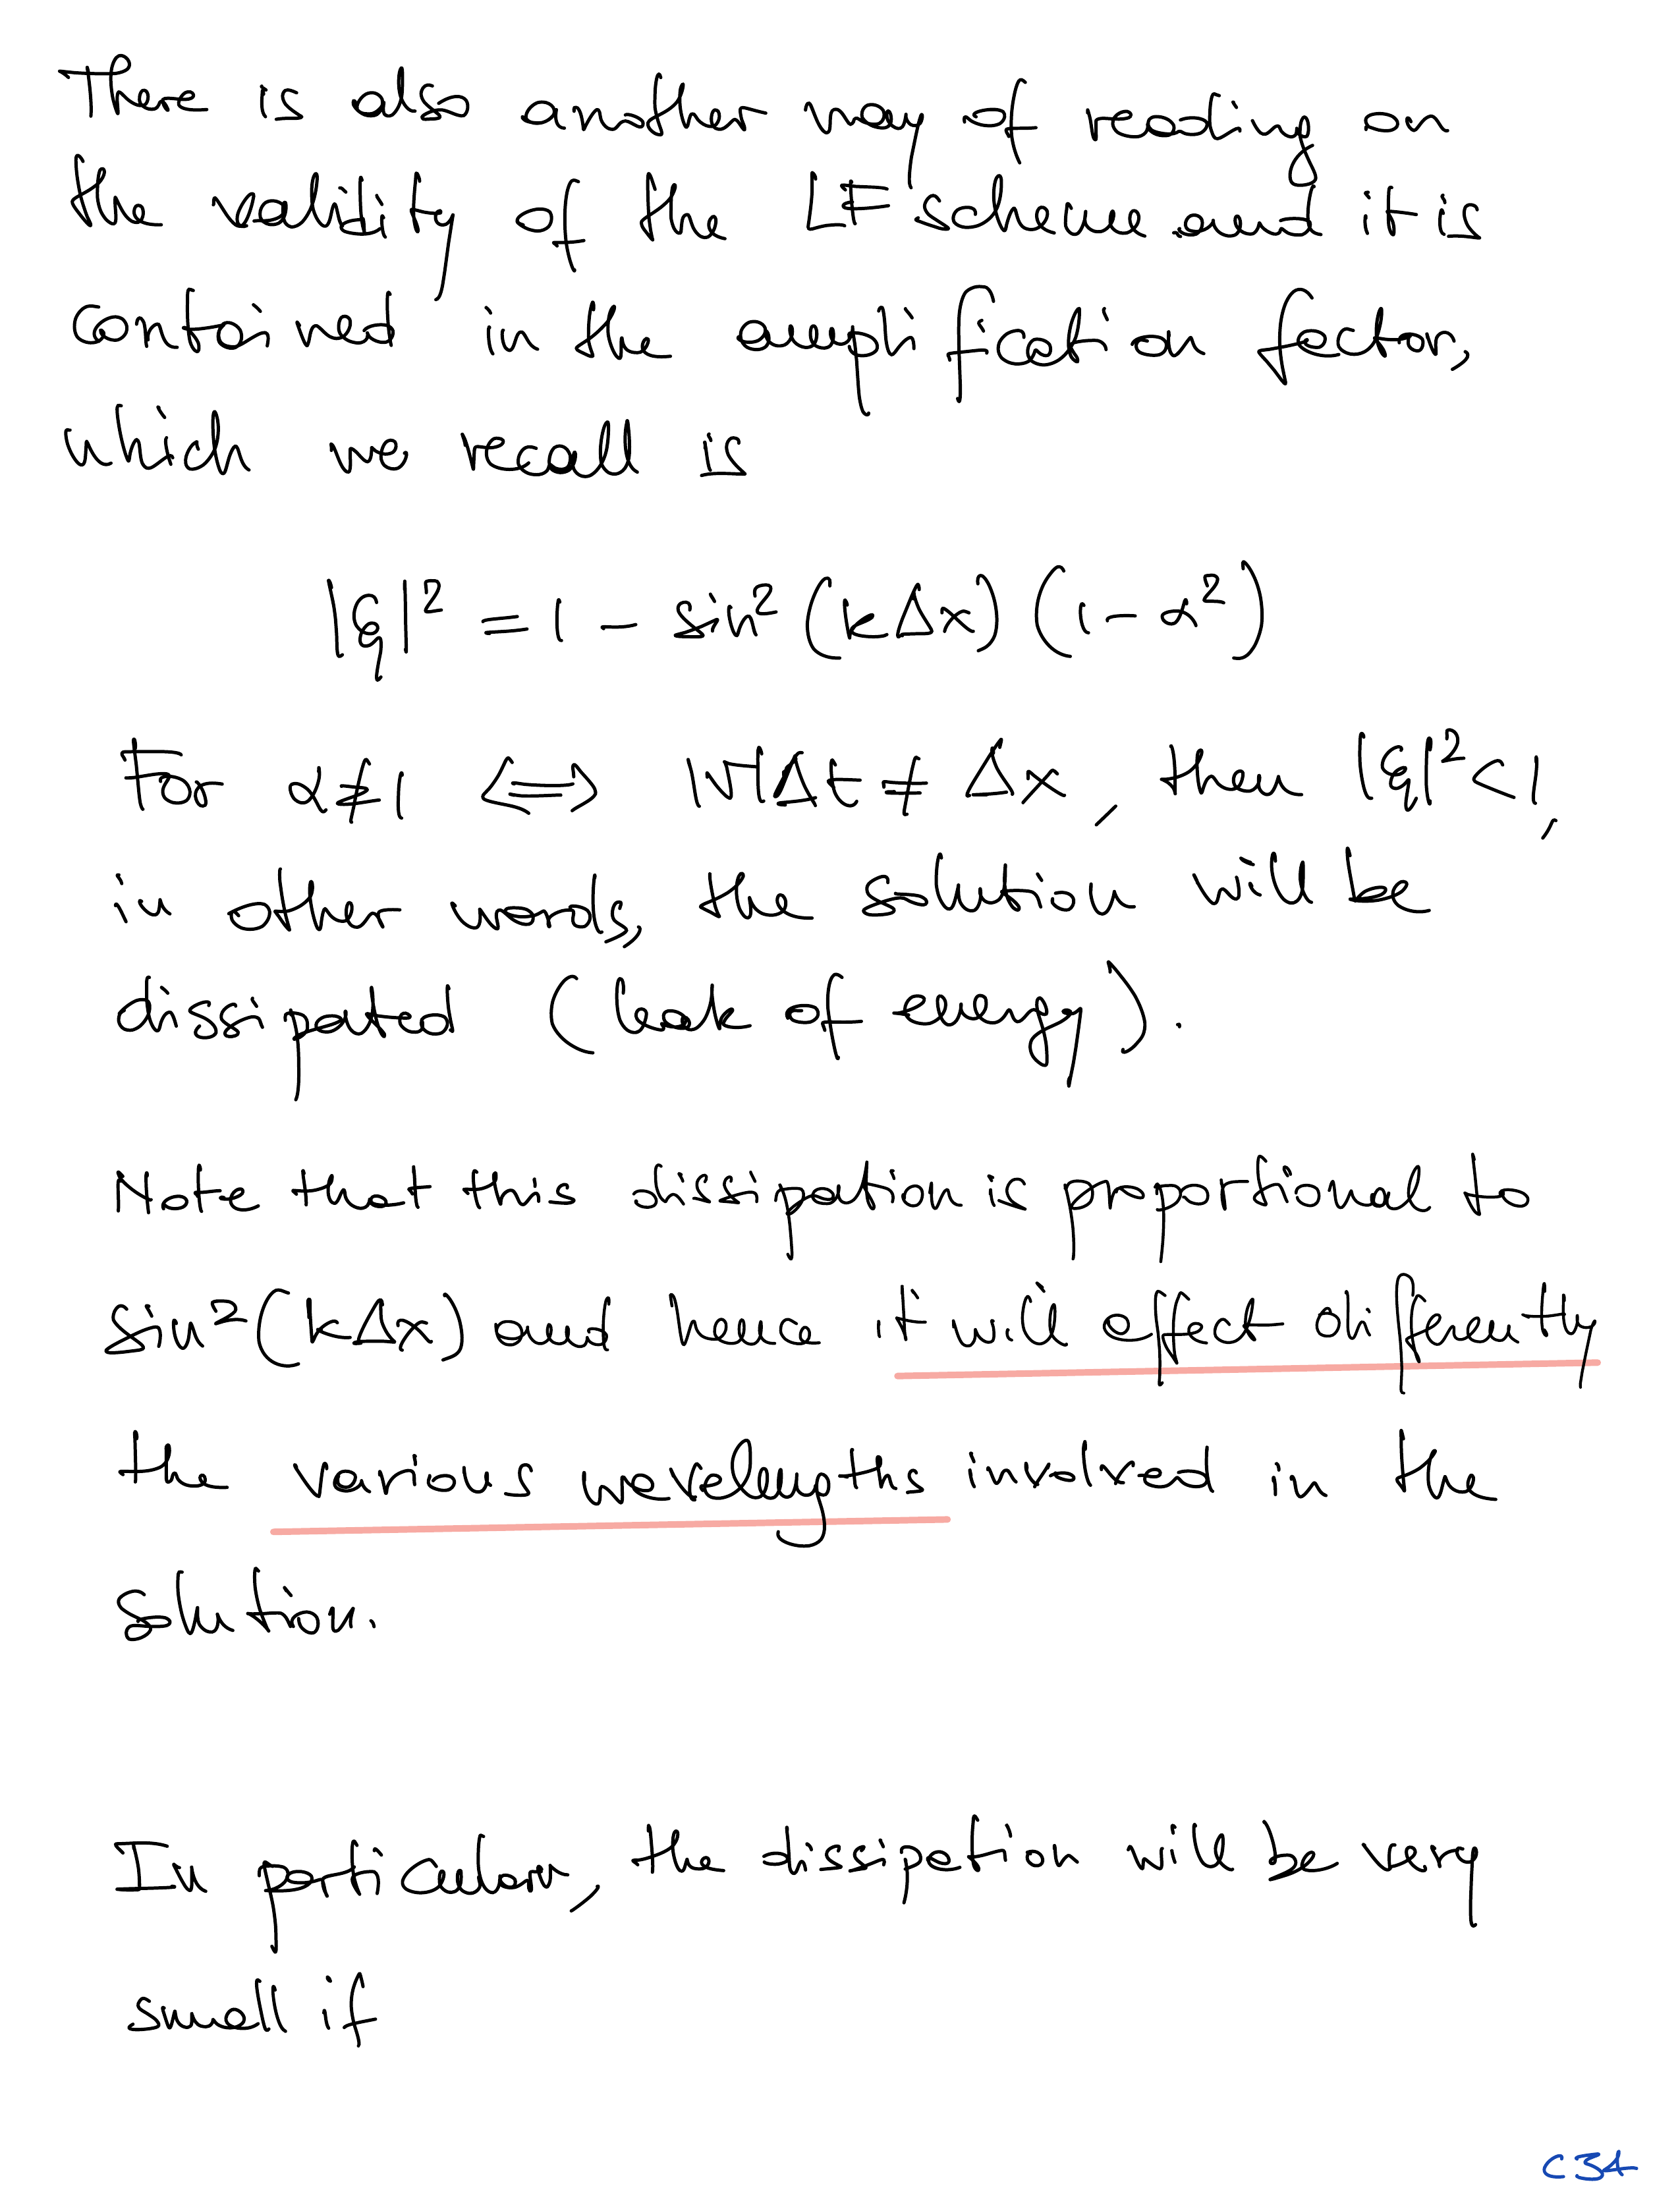 There is also another way of reading on
the validity of the LF scheme and it is
contained in the amplification factor,
which we recall is
|ξ|² = 1 - sin² (kΔx) (1-α²)
For α≠1 ⟺ |v|Δt ≠ Δx, then |ξ|²<1,
in other words, the solution will be
dissipated (leak of energy).
Note that this dissipation is proportional to
sin²(kΔx) and hence it will affect differently
the various wavelengths involved in the
solution.
In particular, the dissipation will be very
small if
C34